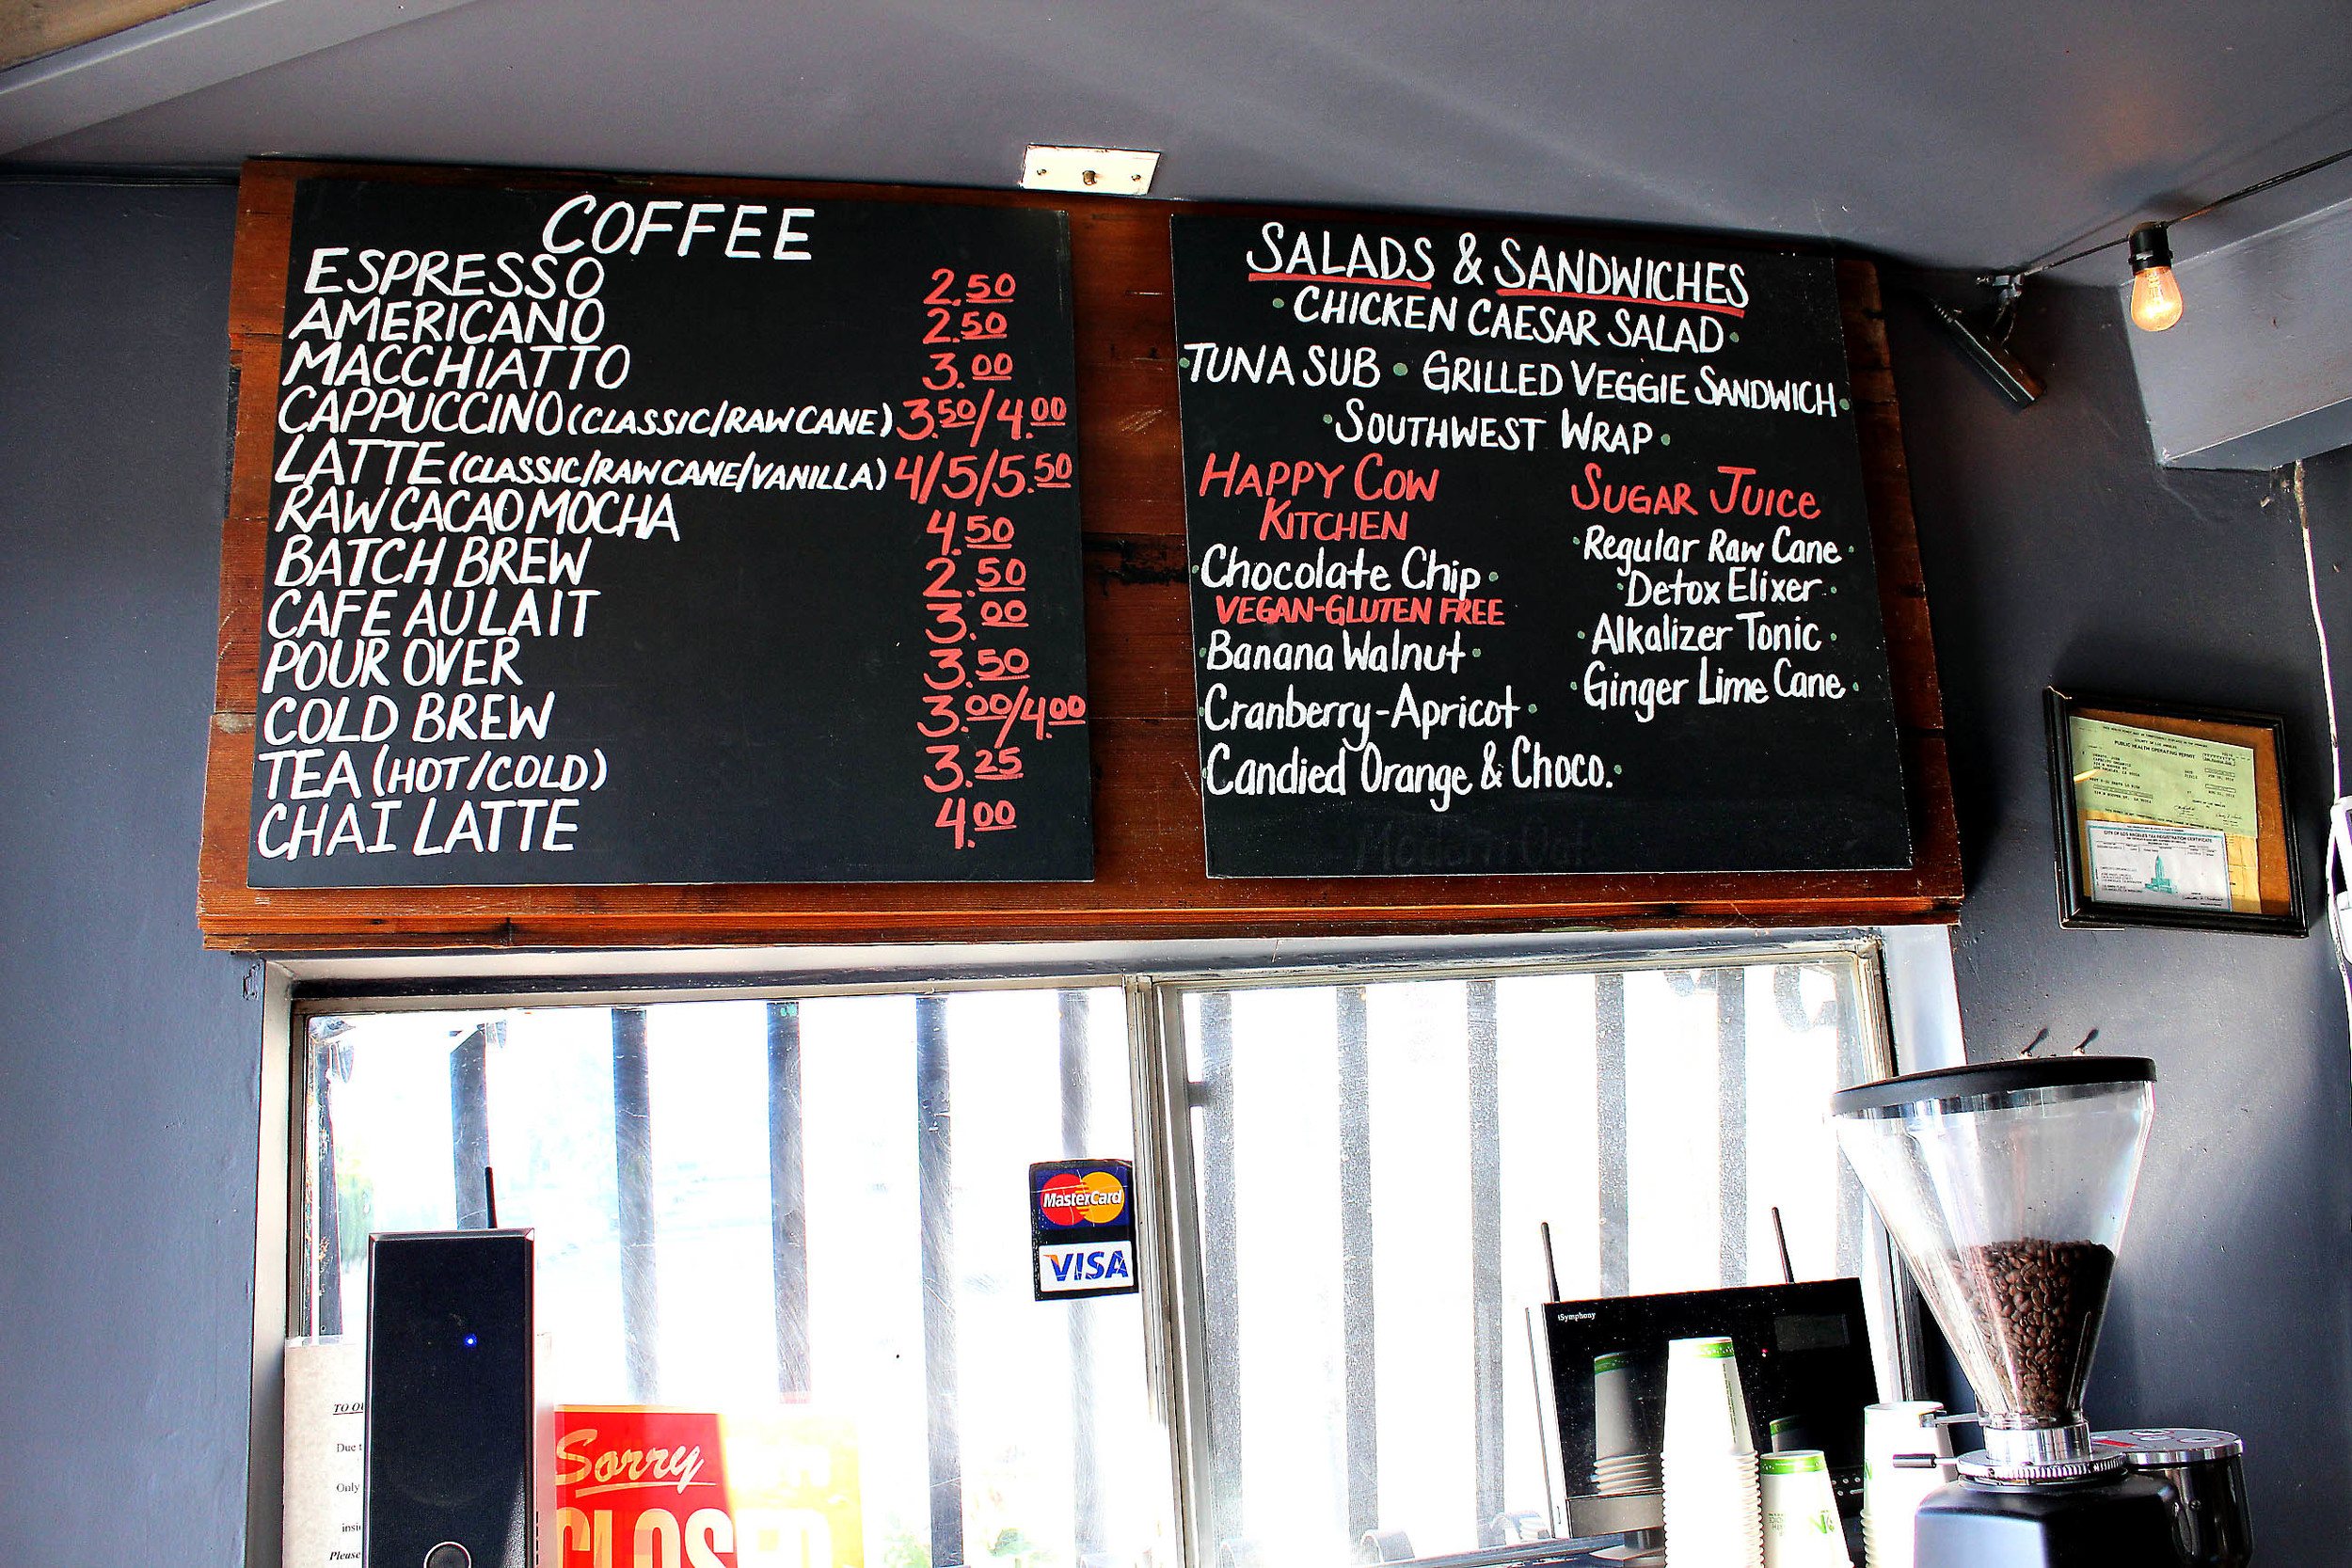 COFFEE
ESPRESSO 2.50
AMERICANO 2.50
MACCHIATTO 3.00
CAPPUCCINO (CLASSIC/RAW CANE) 3.50/4.00
LATTE (CLASSIC/RAW CANE/VANILLA) 4/5/5.50
RAW CACAO MOCHA 4.50
BATCH BREW 2.50
CAFE AU LAIT 3.00
POUR OVER 3.50
COLD BREW 3.00/4.00
TEA (HOT/COLD) 3.25
CHAI LATTE 4.00
SALADS & SANDWICHES
• CHICKEN CAESAR SALAD •
• TUNA SUB • GRILLED VEGGIE SANDWICH •
• SOUTHWEST WRAP •
HAPPY COW
KITCHEN
• Chocolate Chip •
VEGAN-GLUTEN FREE
• Banana Walnut •
• Cranberry-Apricot •
• Candied Orange & Choco. •
SUGAR JUICE
• Regular Raw Cane •
• Detox Elixer •
• Alkalizer Tonic •
• Ginger Lime Cane •
PUBLIC HEALTH OPERATING PERMIT
CITY OF LOS ANGELES TAX REGISTRATION CERTIFICATE
MasterCard
VISA
iSymphony
TO
Due
Only
Please
Sorry
CLOSED